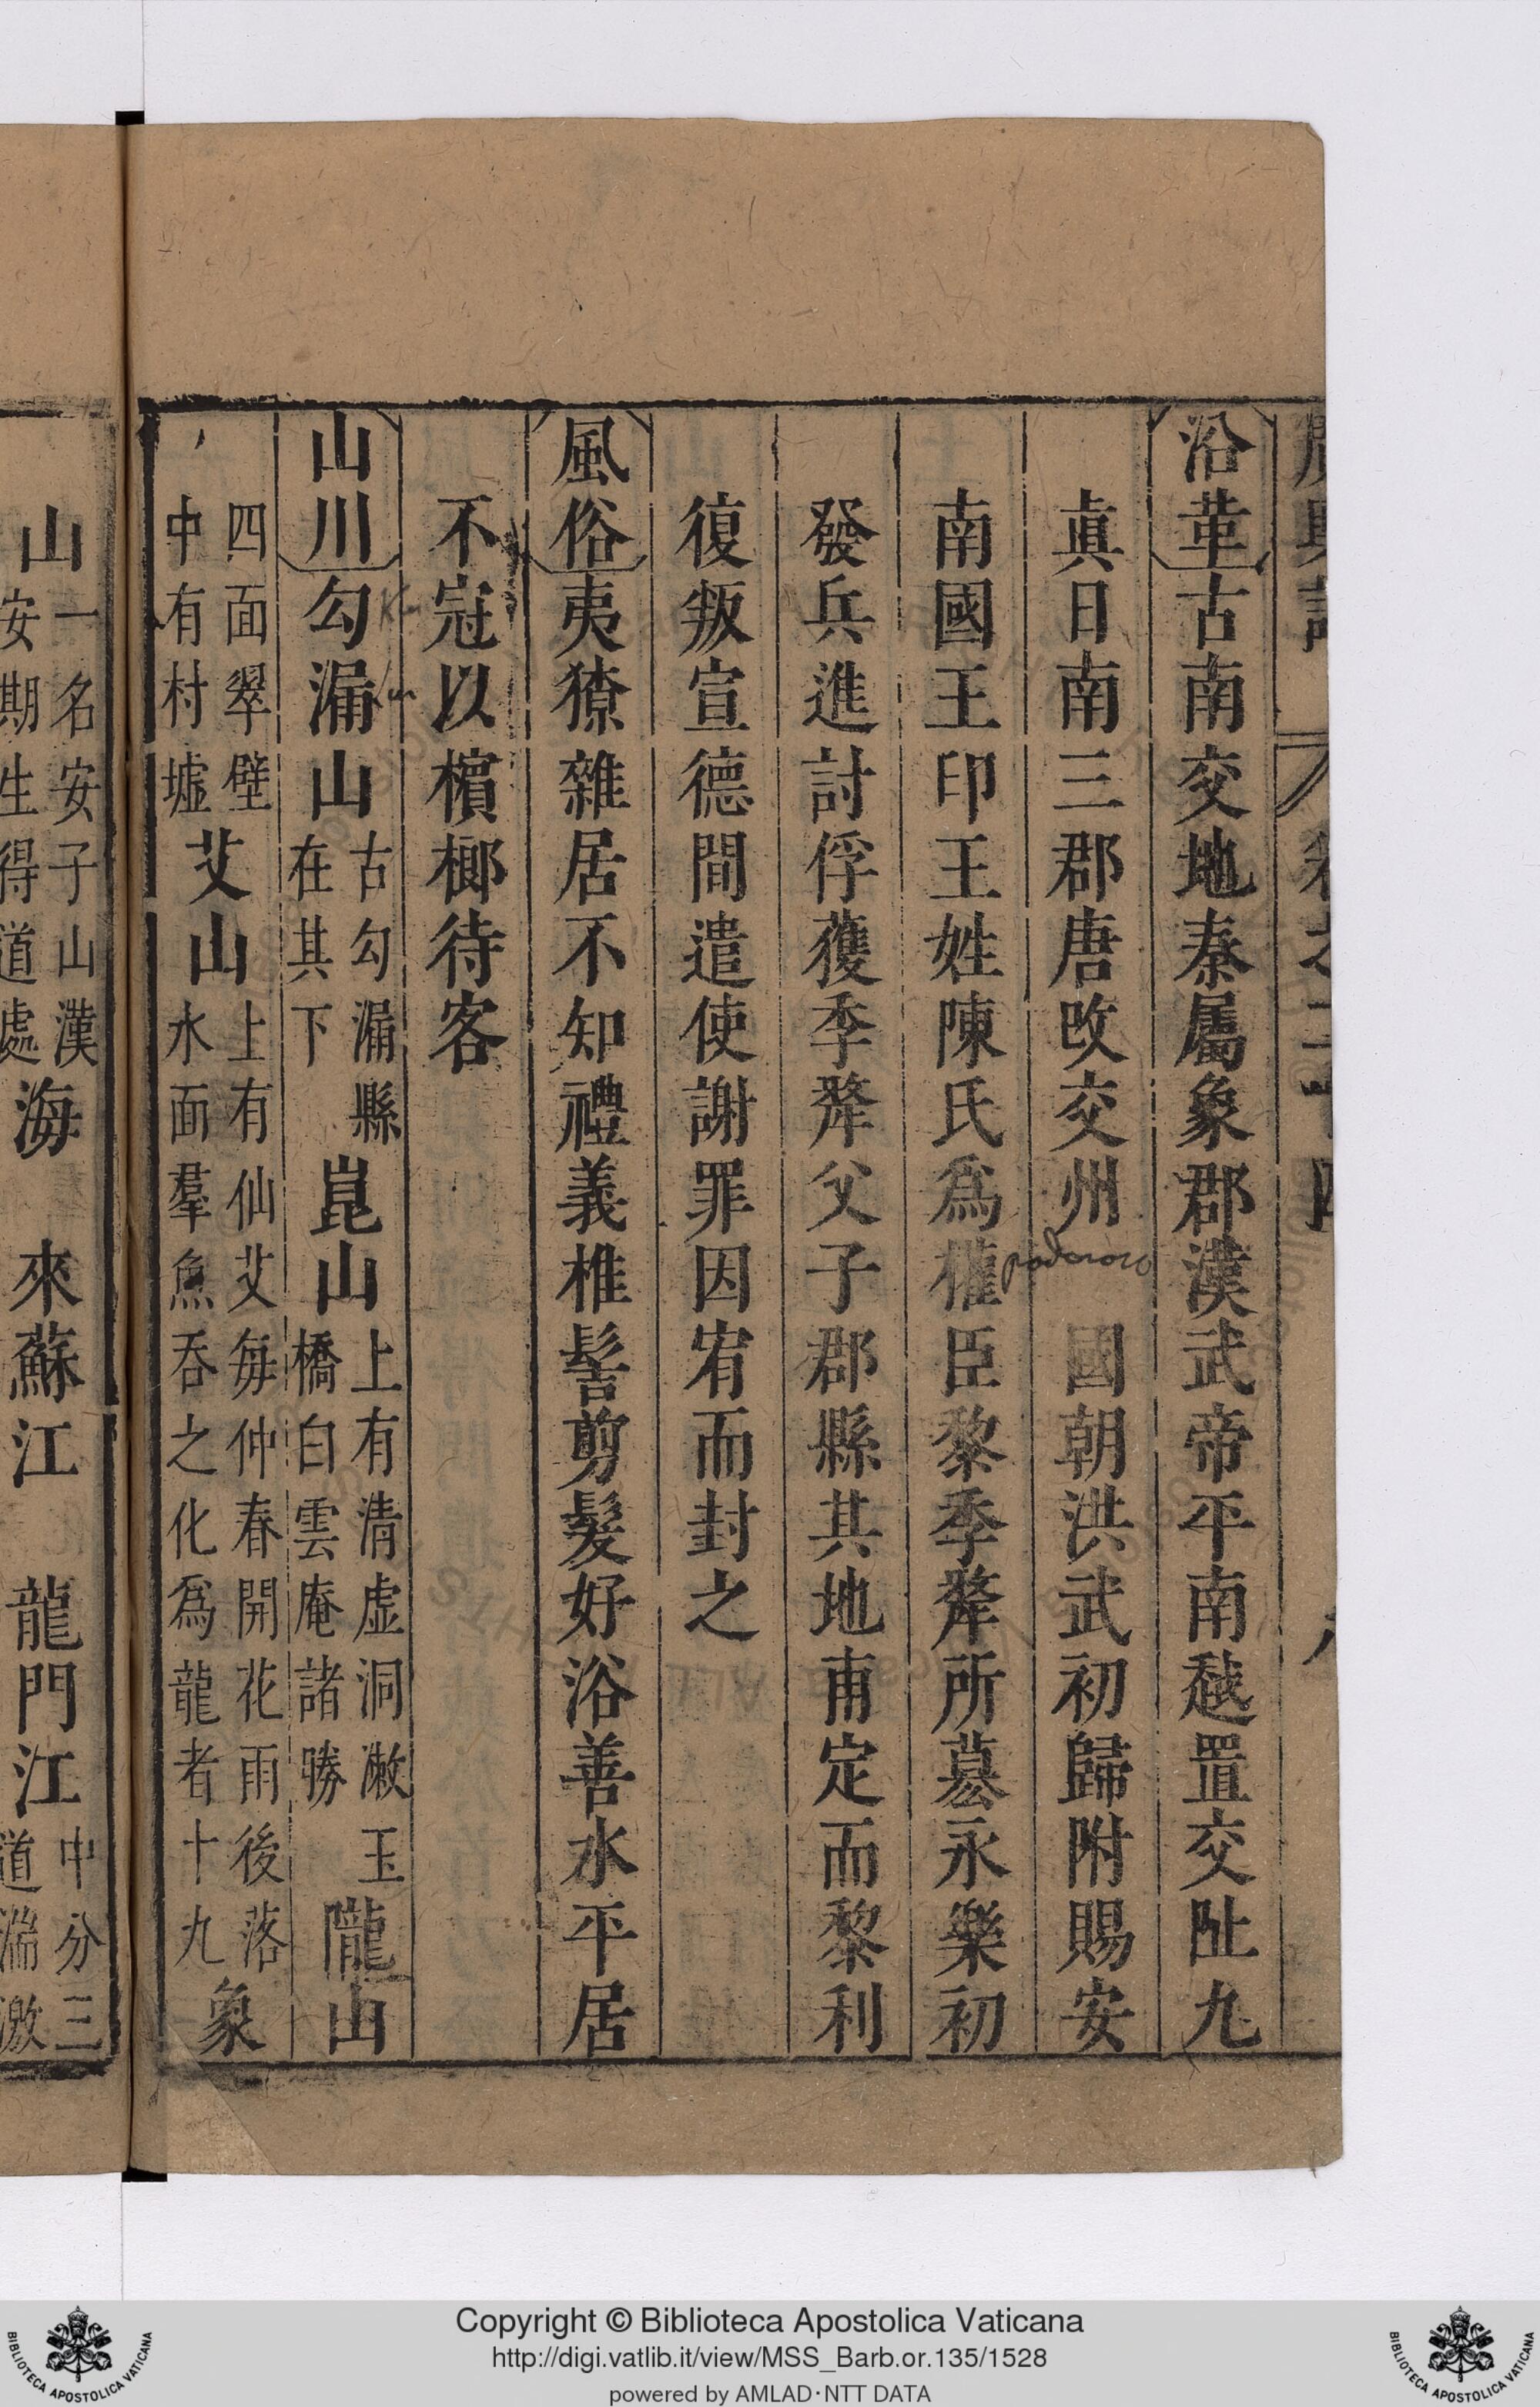 沿革古南交地秦屬象郡漢武帝平南越置交阯九
眞日南三郡唐改交州 國朝洪武初歸附賜安
南國王印王姓陳氏爲權臣黎季犛所簒永樂初
發兵進討俘獲季犛父子郡縣其地甫定而黎利
復叛宣德間遣使謝罪因宥而封之
風俗夷獠雜居不知禮義椎髻剪髮好浴善水平居
不冠以檳榔待客
山川勾漏山古勾漏縣在其下崑山上有清虛洞漱玉橋白雲庵諸勝隴山
四面翠壁中有村墟艾山上有仙艾每仲春開花雨後落水面羣魚吞之化爲龍者十九象
山一名安子山漢安期生得道處海 來蘇江 龍門江中分三道湍激
poderoso
Copyright © Biblioteca Apostolica Vaticana
http://digi.vatlib.it/view/MSS_Barb.or.135/1528
powered by AMLAD·NTT DATA
BIBLIOTECA APOSTOLICA VATICANA
BIBLIOTECA APOSTOLICA VATICANA